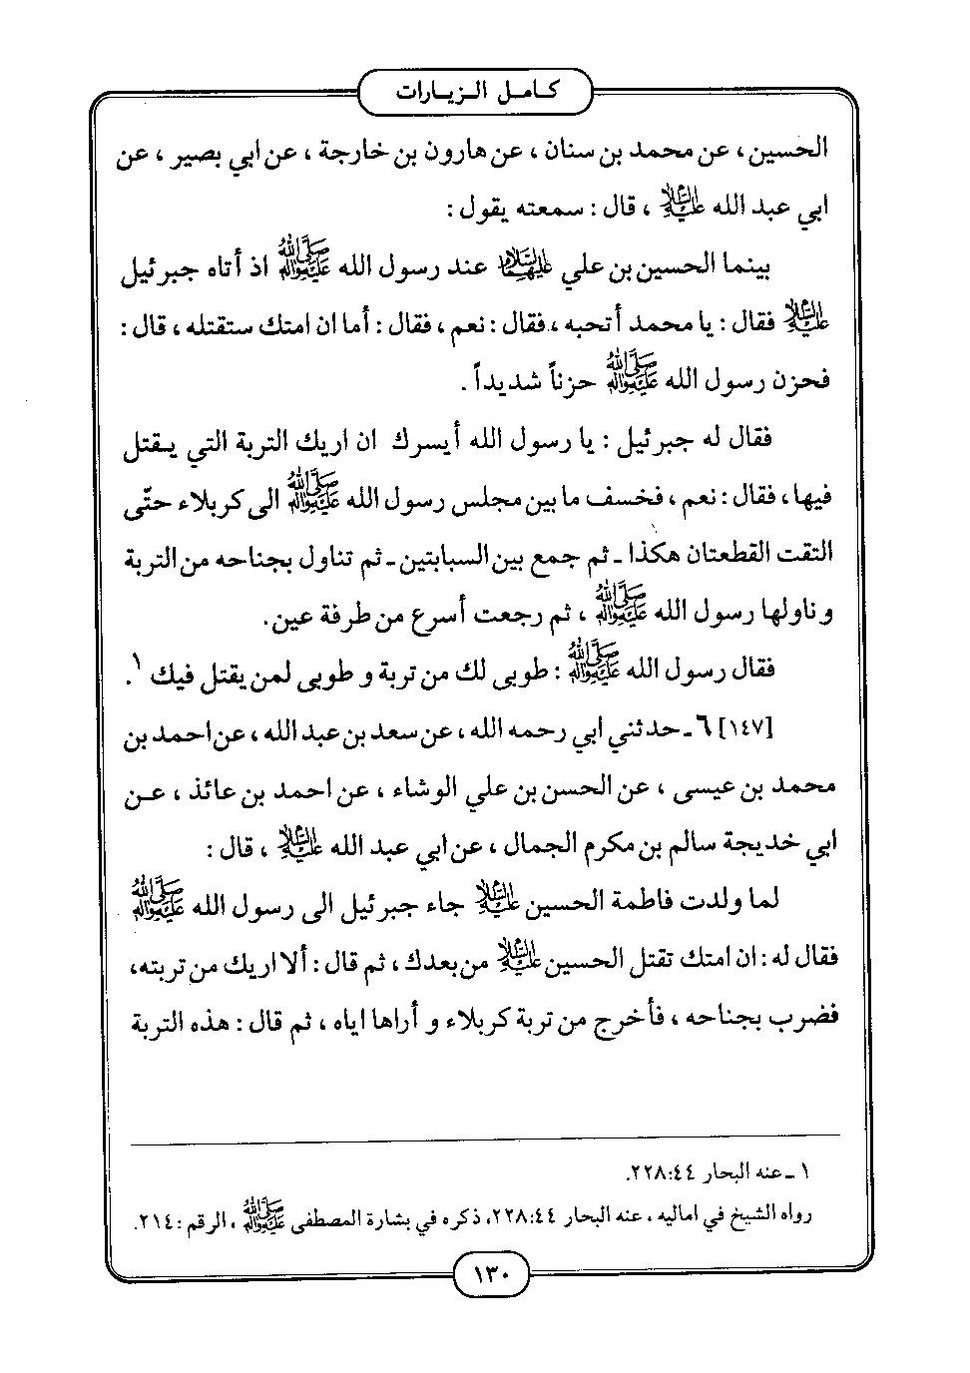 كامل الزيارات
الحسين، عن محمد بن سنان، عن هارون بن خارجة، عن ابي بصير، عن
ابي عبد الله عليه السلام، قال: سمعته يقول:
بينما الحسين بن علي عليهما السلام عند رسول الله صلى الله عليه وآله اذ أتاه جبرئيل
عليه السلام فقال: يا محمد أتحبه، فقال: نعم، فقال: أما ان امتك ستقتله، قال:
فحزن رسول الله صلى الله عليه وآله حزناً شديداً.
فقال له جبرئيل: يا رسول الله أيسرك ان اريك التربة التي يقتل
فيها، فقال: نعم، فخسف ما بين مجلس رسول الله صلى الله عليه وآله الى كربلاء حتّى
التقت القطعتان هكذا ـ ثم جمع بين السبابتين ـ ثم تناول بجناحه من التربة
وناولها رسول الله صلى الله عليه وآله، ثم رجعت أسرع من طرفة عين.
فقال رسول الله صلى الله عليه وآله: طوبى لك من تربة و طوبى لمن يقتل فيك ١.
[١٤٧] ٦ ـ حدثني ابي رحمه الله، عن سعد بن عبد الله، عن احمد بن
محمد بن عيسى، عن الحسن بن علي الوشاء، عن احمد بن عائذ، عن
ابي خديجة سالم بن مكرم الجمال، عن ابي عبد الله عليه السلام، قال:
لما ولدت فاطمة الحسين عليه السلام جاء جبرئيل الى رسول الله صلى الله عليه وآله
فقال له: ان امتك تقتل الحسين عليه السلام من بعدك، ثم قال: ألا اريك من تربته،
فضرب بجناحه، فأخرج من تربة كربلاء و أراها اياه، ثم قال: هذه التربة
١ ـ عنه البحار ٤٤:٢٢٨.
رواه الشيخ في اماليه، عنه البحار ٤٤:٢٢٨، ذكره في بشارة المصطفى صلى الله عليه وآله، الرقم: ٢١٤.
١٣٠